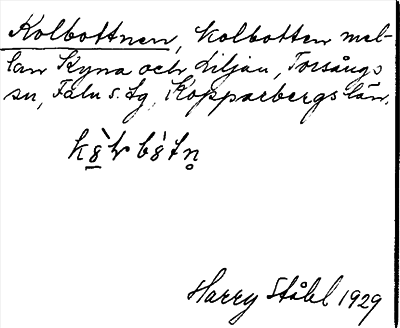 Kolbottnen, kolbotten mel-
lan Kyna och Liljan, Torsångs
sn, Falu s. tg, Kopparbergs län.
Harry Ståhl 1929